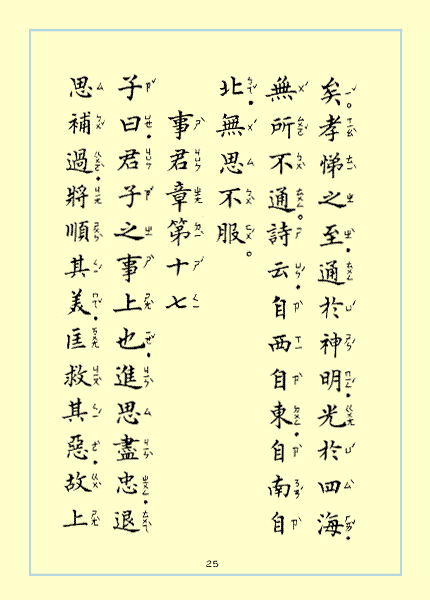 矣。孝悌之至．通於神明．光於四海．
無所不通。詩云．自西自東．自南自
北．無思不服。
事君章第十七
子曰．君子之事上也．進思盡忠．退
思補過．將順其美．匡救其惡．故上
25